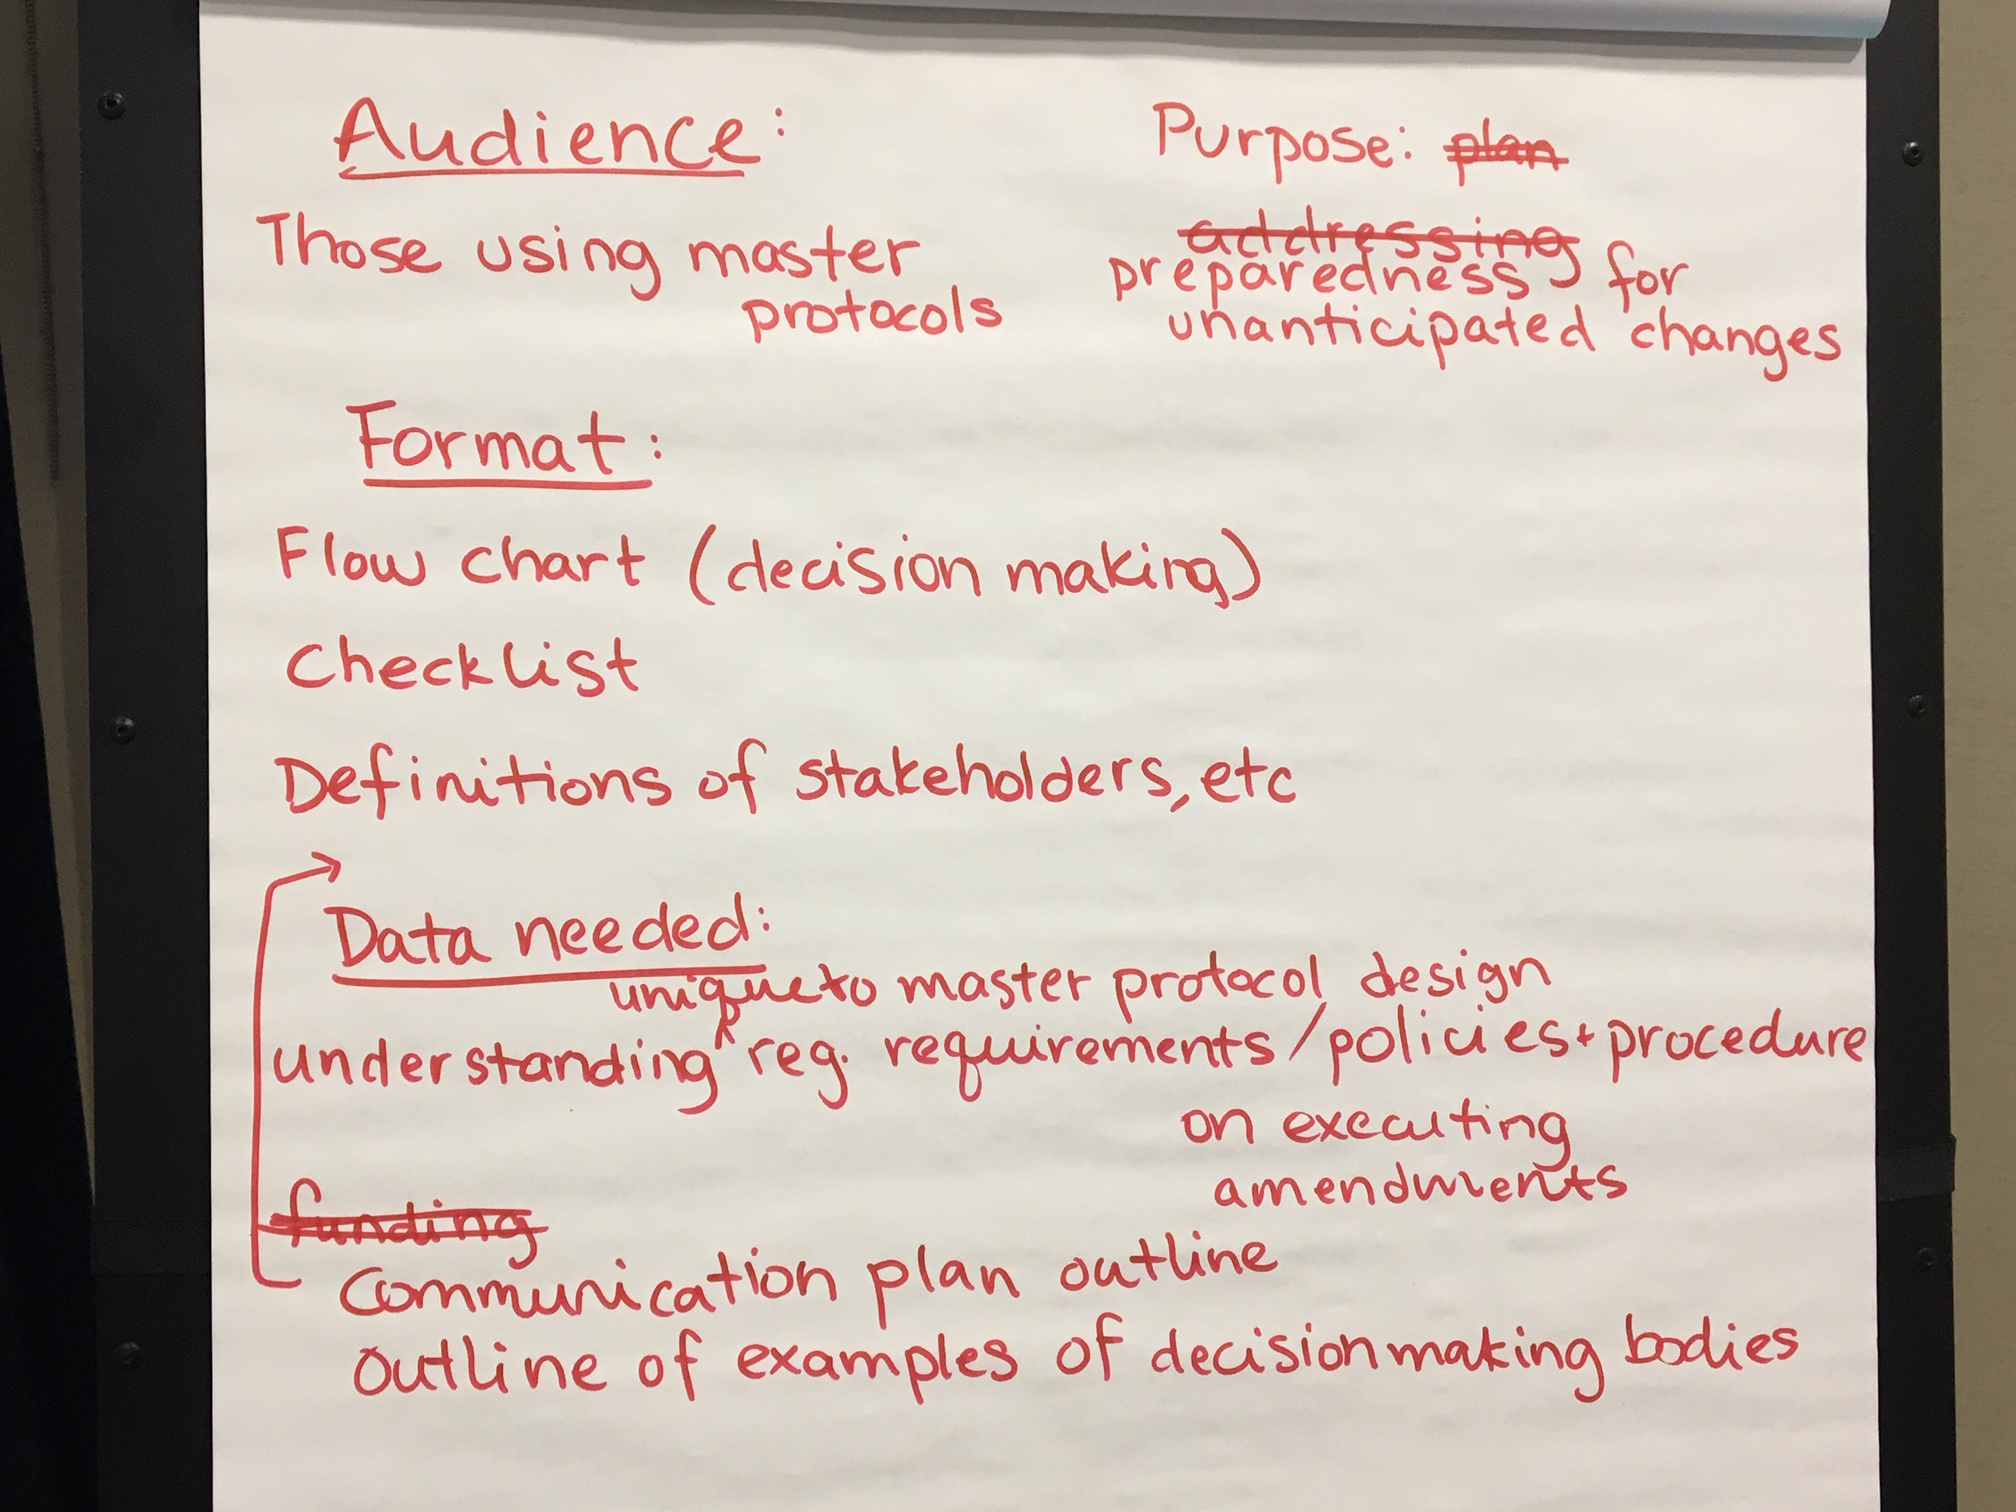 Audience:
Those using master
protocols
Purpose: plan
addressing
preparedness for
unanticipated changes
Format:
Flow chart (decision making)
Checklist
Definitions of stakeholders, etc
Data needed:
unique to master protocol design
understanding reg. requirements/policies + procedure
on executing
amendments
funding
Communication plan outline
Outline of examples of decisionmaking bodies